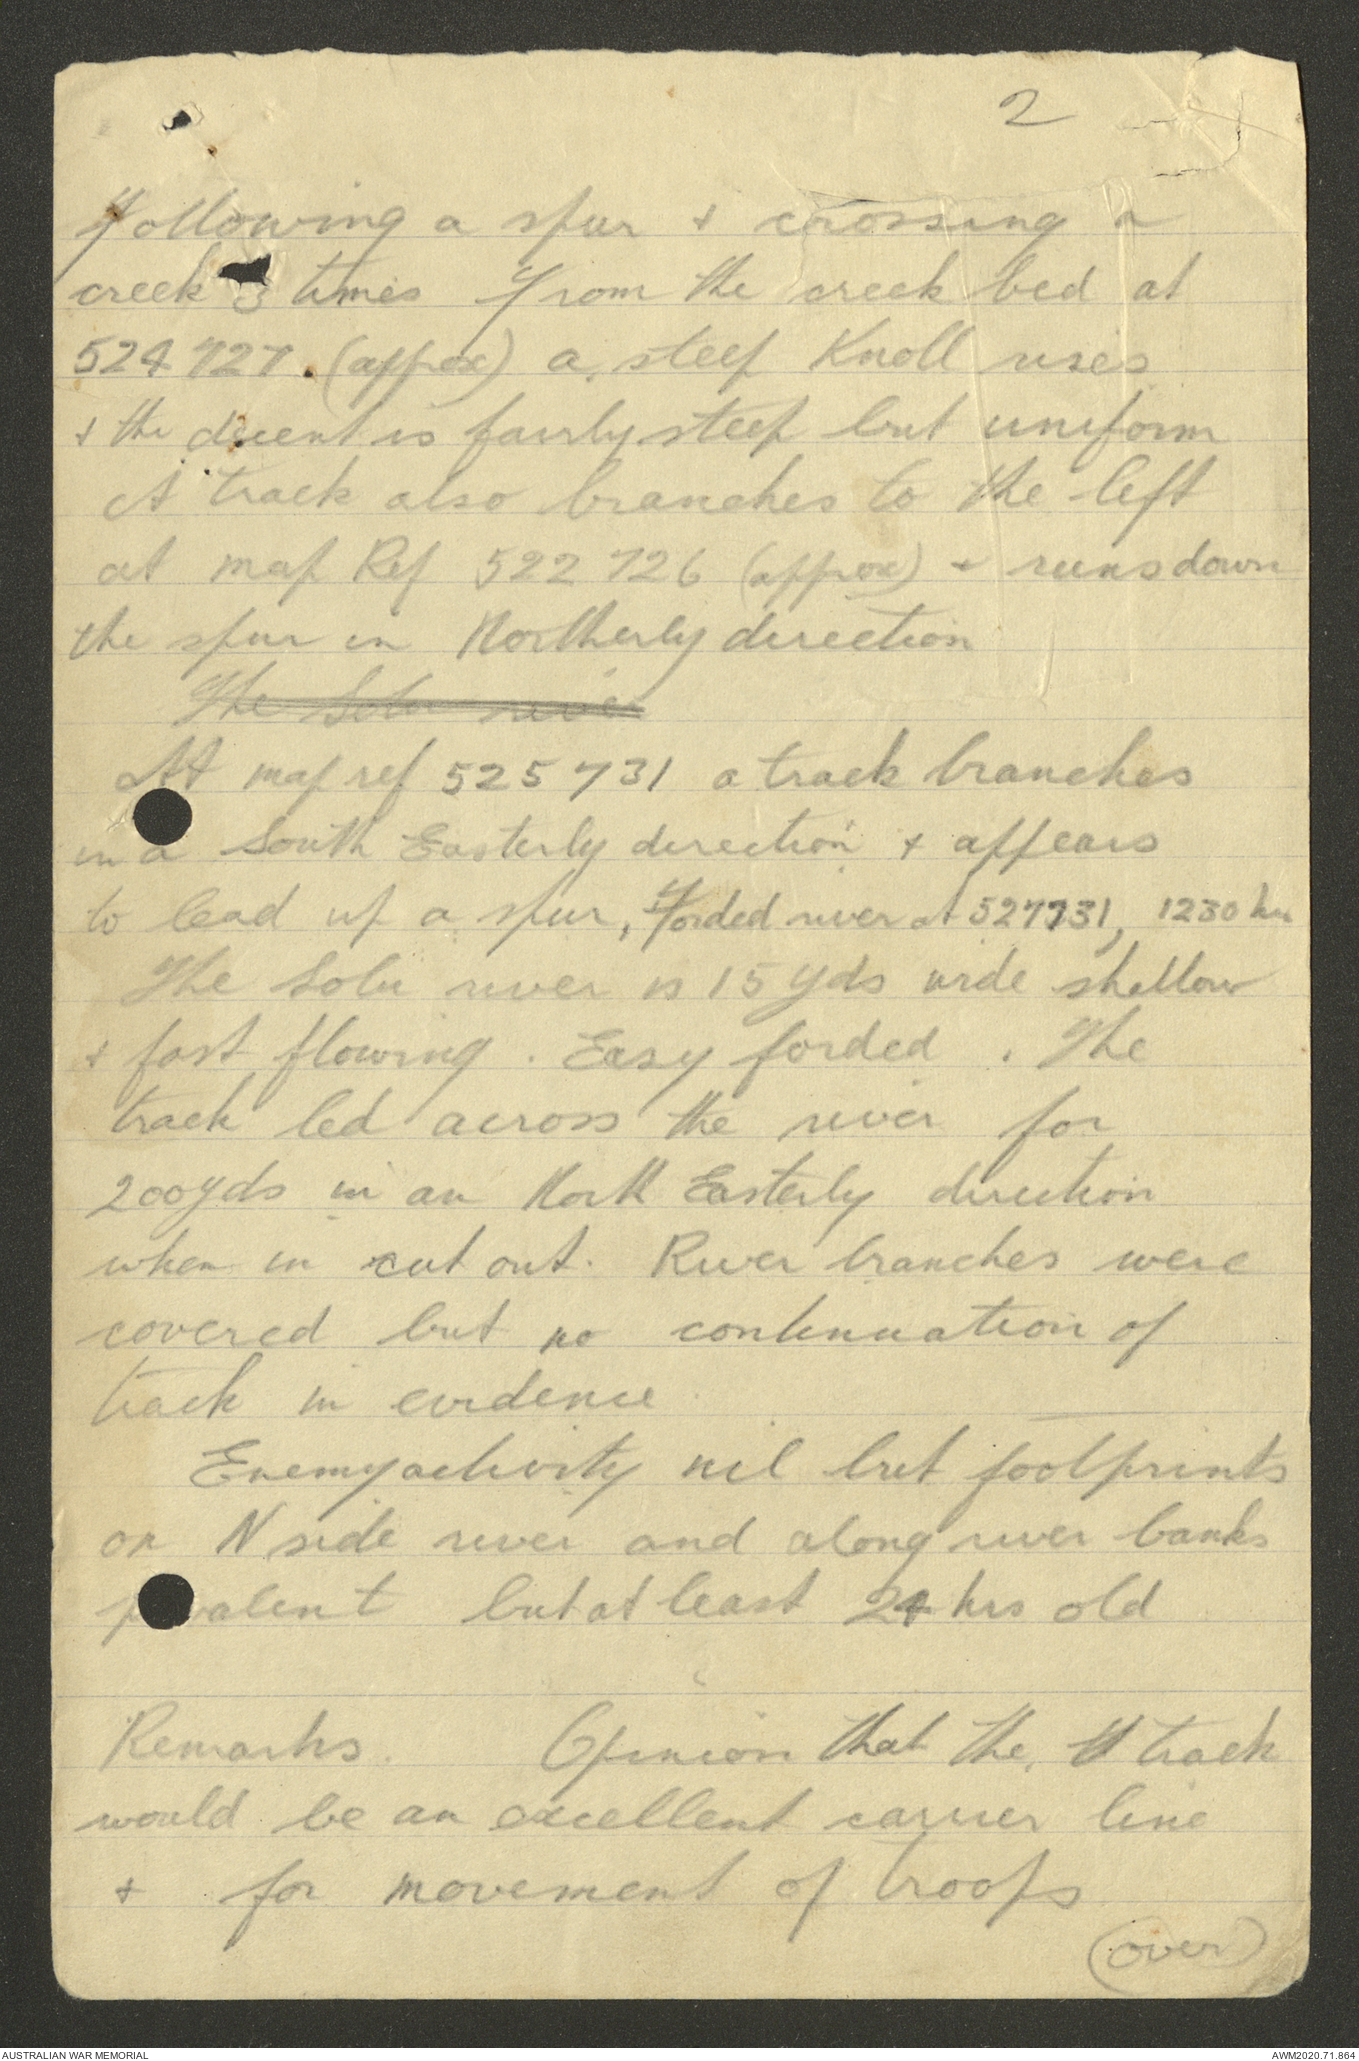 2
Following a spur + crossing a
creek 3 times From the creek bed at
524 727. (appox) a steep Knoll rises
+ the decent is fairly steep but uniform
A track also branches to the left
at map Ref 522 726 (appox) + runs down
the spur in Northerly direction
The Solu river
At map ref 525731 a track branches
in a South Easterly direction + appears
to lead up a spur, Forded river at 527731, 1230 hrs
The Solu river is 15 yds wide shallow
+ fast flowing. Easy forded. The
track led across the river for
200yds in an North Easterly direction
when in cut out. River branches were
covered but no continuation of
track in evidence
Enemy activity nil but footprints
on N side river and along river banks
p valent but at least 24 hrs old
Remarks. Opinion that the track
would be an excellent carrier line
+ for movement of troops
(over)
AUSTRALIAN WAR MEMORIAL
AWM2020.71.864